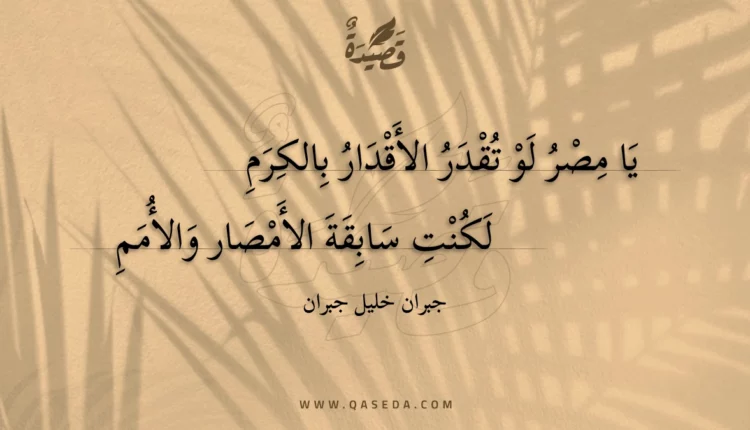 قَصِيْدَةٌ
يَا مِصْرُ لَوْ تُقْدَرُ الأَقْدَارُ بِالكِرَمِ
لَكُنْتِ سَابِقَةَ الأَمْصَار وَالأُمَمِ
جبران خليل جبران
WWW.QASEDA.COM